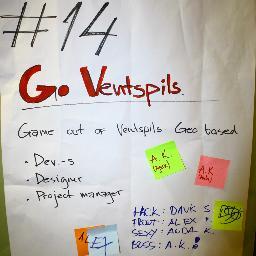 #14
Go Ventspils
Game out of Ventspils Geo based
• Dev.-s
• Designer
• Project manager
A.K.
A.K
HACK: DAVIS S.
FRONT: ALEX P
SEXY: ALDA K.
BOSS: A.K.!